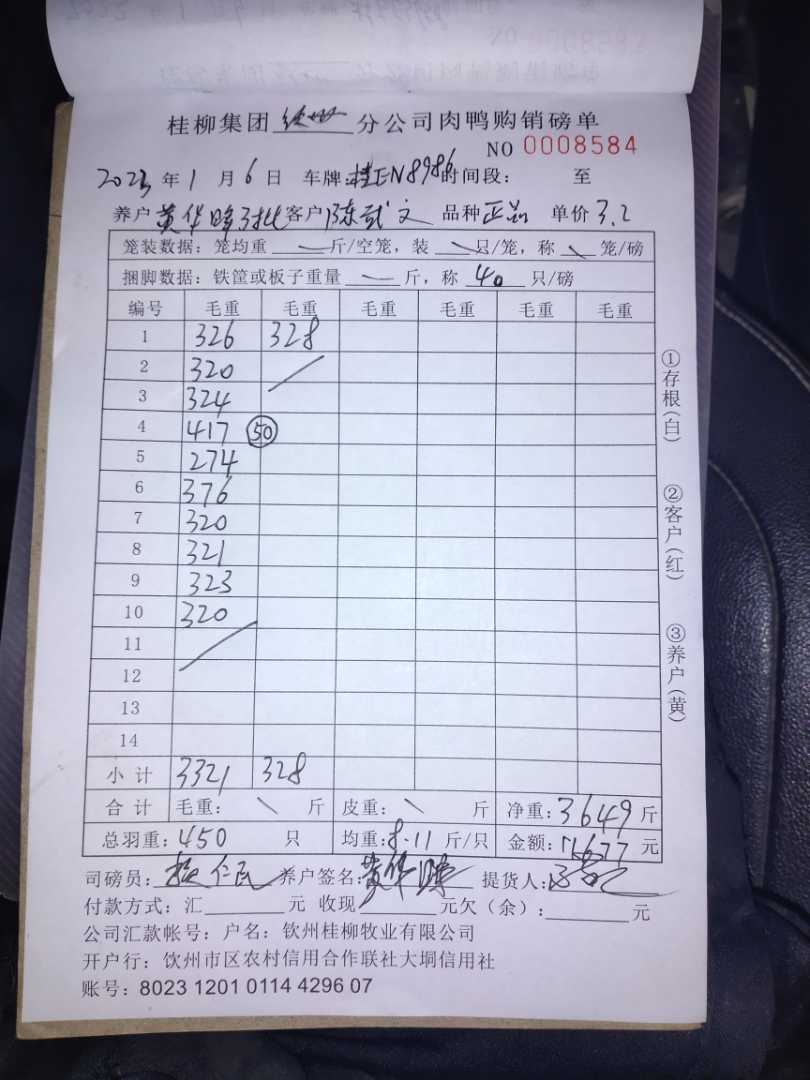 桂柳集团 钦州 分公司肉鸭购销磅单
NO 0008584
2023 年 1 月 6 日 车牌:桂EN8986 时间段: 至
养户 黄华 客户 陈武文 品种 正品 单价 3.2
笼装数据:笼均重 斤/空笼,装 只/笼,称 笼/磅
捆脚数据:铁筐或板子重量 一 斤,称 40 只/磅
编号 毛重 毛重 毛重 毛重 毛重 毛重
1 326 328
2 320
3 324
4 417 50
5 274
6 376
7 320
8 321
9 323
10 320
11
12
13
14
小计 3321 328
合计 毛重: 斤 皮重: 斤 净重:3649 斤
总羽重:450 只 均重:8.11 斤/只 金额:11677 元
司磅员: 养户签名:黄华 提货人:
付款方式:汇 元 收现 元欠(余): 元
公司汇款帐号:户名:钦州桂柳牧业有限公司
开户行:饮州市区农村信用合作联社大垌信用社
账号:8023 1201 0114 4296 07
①存根(白)
②客户(红)
③养户(黄)